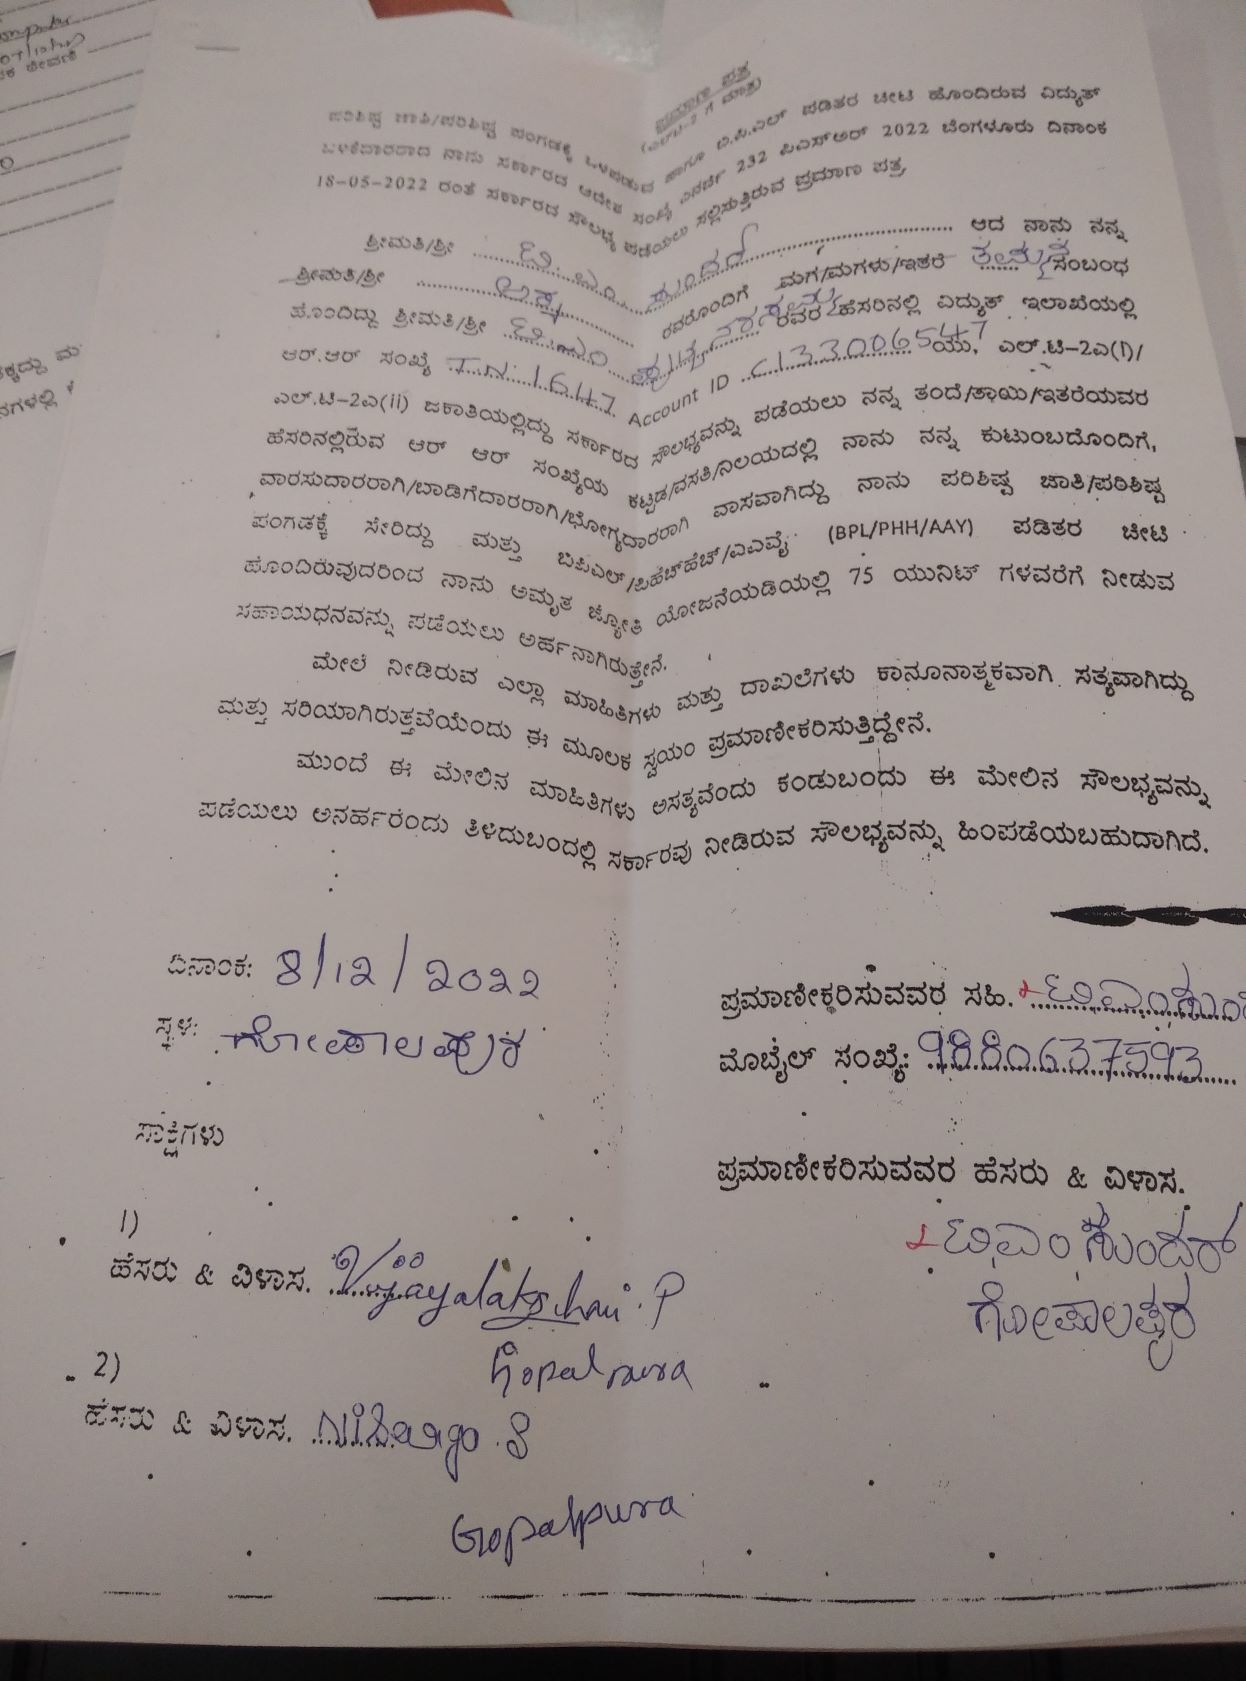 ಪ್ರಮಾಣ ಪತ್ರ
(ಎಲ್‌ಟಿ-2 ಗೆ ಮಾತ್ರ)
ಪರಿಶಿಷ್ಟ ಜಾತಿ/ಪರಿಶಿಷ್ಟ ಪಂಗಡಕ್ಕೆ ಒಳಪಡುವ ಹಾಗೂ ಬಿ.ಪಿ.ಎಲ್ ಪಡಿತರ ಚೀಟಿ ಹೊಂದಿರುವ ವಿದ್ಯುತ್
ಬಳಕೆದಾರರಾದ ನಾನು ಸರ್ಕಾರದ ಆದೇಶ ಸಂಖ್ಯೆ ಎನರ್ಜಿ 232 ಪಿಎಸ್ಆರ್ 2022 ಬೆಂಗಳೂರು ದಿನಾಂಕ
18-05-2022 ರಂತೆ ಸರ್ಕಾರದ ಸೌಲಭ್ಯ ಪಡೆಯಲು ಸಲ್ಲಿಸುತ್ತಿರುವ ಪ್ರಮಾಣ ಪತ್ರ
ಶ್ರೀಮತಿ/ಶ್ರೀ ಟಿ.ಎಂ. ಸುಂದರ್ ಆದ ನಾನು ನನ್ನ
ಶ್ರೀಮತಿ/ಶ್ರೀ ರವರೊಂದಿಗೆ ಮಗ/ಮಗಳು/ಇತರೆ ಸಂಬಂಧ
ಹೊಂದಿದ್ದು ಶ್ರೀಮತಿ/ಶ್ರೀ ಟಿ.ಎಂ ರವರ ಹೆಸರಿನಲ್ಲಿ ವಿದ್ಯುತ್ ಇಲಾಖೆಯಲ್ಲಿ
ಆರ್.ಆರ್ ಸಂಖ್ಯೆ 1647 Account ID 1330065547 ಯು, ಎಲ್.ಟಿ-2ಎ(i)/
ಎಲ್.ಟಿ-2ಎ(ii) ಜಕಾತಿಯಲ್ಲಿದ್ದು ಸರ್ಕಾರದ ಸೌಲಭ್ಯವನ್ನು ಪಡೆಯಲು ನನ್ನ ತಂದೆ/ತಾಯಿ/ಇತರೆಯವರ
ಹೆಸರಿನಲ್ಲಿರುವ ಆರ್ ಆರ್ ಸಂಖ್ಯೆಯ ಕಟ್ಟಡ/ವಸತಿ/ನಿಲಯದಲ್ಲಿ ನಾನು ನನ್ನ ಕುಟುಂಬದೊಂದಿಗೆ,
ವಾರಸುದಾರರಾಗಿ/ಬಾಡಿಗೆದಾರರಾಗಿ/ಭೋಗ್ಯದಾರರಾಗಿ ವಾಸವಾಗಿದ್ದು ನಾನು ಪರಿಶಿಷ್ಟ ಜಾತಿ/ಪರಿಶಿಷ್ಟ
ಪಂಗಡಕ್ಕೆ ಸೇರಿದ್ದು ಮತ್ತು ಬಿಪಿಎಲ್/ಪಿಹೆಚ್‌ಹೆಚ್/ಎಎವೈ (BPL/PHH/AAY) ಪಡಿತರ ಚೀಟಿ
ಹೊಂದಿರುವುದರಿಂದ ನಾನು ಅಮೃತ ಜ್ಯೋತಿ ಯೋಜನೆಯಡಿಯಲ್ಲಿ 75 ಯುನಿಟ್ ಗಳವರೆಗೆ ನೀಡುವ
ಸಹಾಯಧನವನ್ನು ಪಡೆಯಲು ಅರ್ಹನಾಗಿರುತ್ತೇನೆ.
ಮೇಲೆ ನೀಡಿರುವ ಎಲ್ಲಾ ಮಾಹಿತಿಗಳು ಮತ್ತು ದಾಖಲೆಗಳು ಕಾನೂನಾತ್ಮಕವಾಗಿ ಸತ್ಯವಾಗಿದ್ದು
ಮತ್ತು ಸರಿಯಾಗಿರುತ್ತವೆಯೆಂದು ಈ ಮೂಲಕ ಸ್ವಯಂ ಪ್ರಮಾಣೀಕರಿಸುತ್ತಿದ್ದೇನೆ.
ಮುಂದೆ ಈ ಮೇಲಿನ ಮಾಹಿತಿಗಳು ಅಸತ್ಯವೆಂದು ಕಂಡುಬಂದು ಈ ಮೇಲಿನ ಸೌಲಭ್ಯವನ್ನು
ಪಡೆಯಲು ಅನರ್ಹರೆಂದು ತಿಳಿದುಬಂದಲ್ಲಿ ಸರ್ಕಾರವು ನೀಡಿರುವ ಸೌಲಭ್ಯವನ್ನು ಹಿಂಪಡೆಯಬಹುದಾಗಿದೆ.
ದಿನಾಂಕ: 8/12/2022
ಸ್ಥಳ: ಗೋಪಾಲಪುರ
ಪ್ರಮಾಣೀಕರಿಸುವವರ ಸಹಿ. ಟಿ.ಎಂ.ಸುಂದ
ಮೊಬೈಲ್ ಸಂಖ್ಯೆ: 9880637593
ಸಾಕ್ಷಿಗಳು
ಪ್ರಮಾಣೀಕರಿಸುವವರ ಹೆಸರು & ವಿಳಾಸ.
ಟಿಎಂ ಸುಂದರ್
ಗೋಪಾಲಪುರ
1)
ಹೆಸರು & ವಿಳಾಸ. Vijayalakshmi.P
Gopalpura
2)
ಹೆಸರು & ವಿಳಾಸ.
Gopalpura